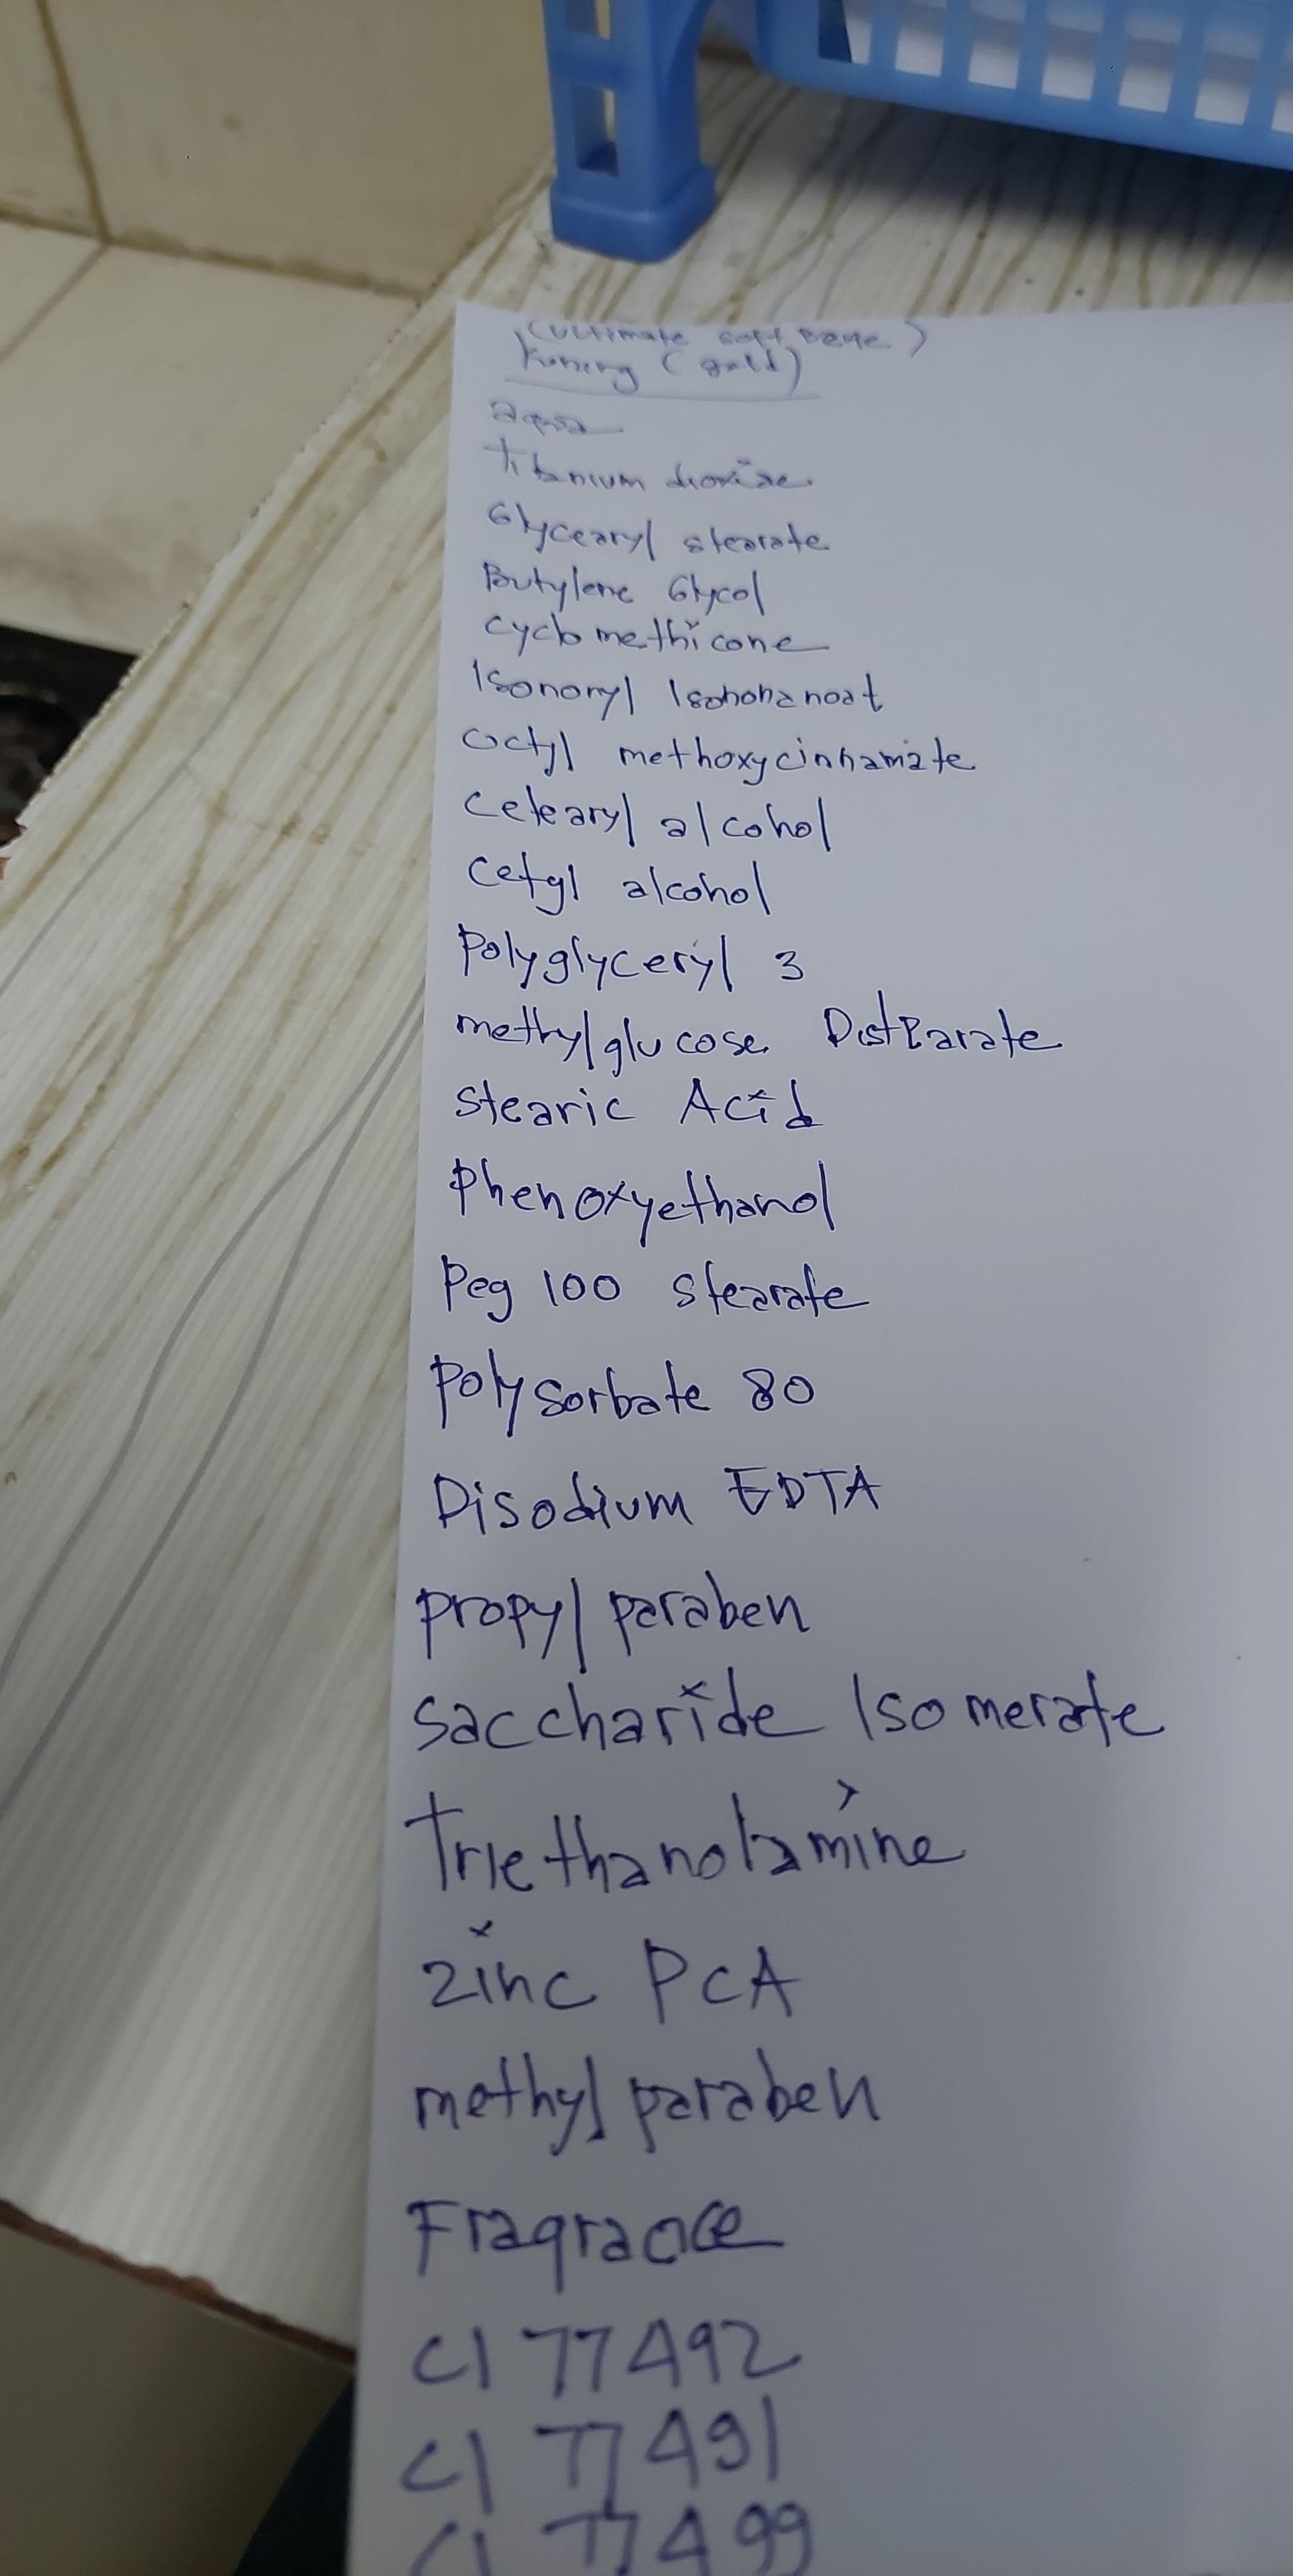 (Ultimate soft beige)
Kuning (gold)
aqua
Titanium dioxide
Glycearyl stearate
Butylene Glycol
cyclo methicone
Isononyl Isononanoat
octyl methoxycinnamate
cetearyl alcohol
cetyl alcohol
Polyglyceryl 3
methylglucose Distearate
stearic Acid
Phenoxyethanol
Peg 100 stearate
Polysorbate 80
Disodium EDTA
propyl paraben
saccharide Isomerate
Triethanolamine
zinc PCA
methyl paraben
Fragrance
CI 77492
CI 77491
CI 77499